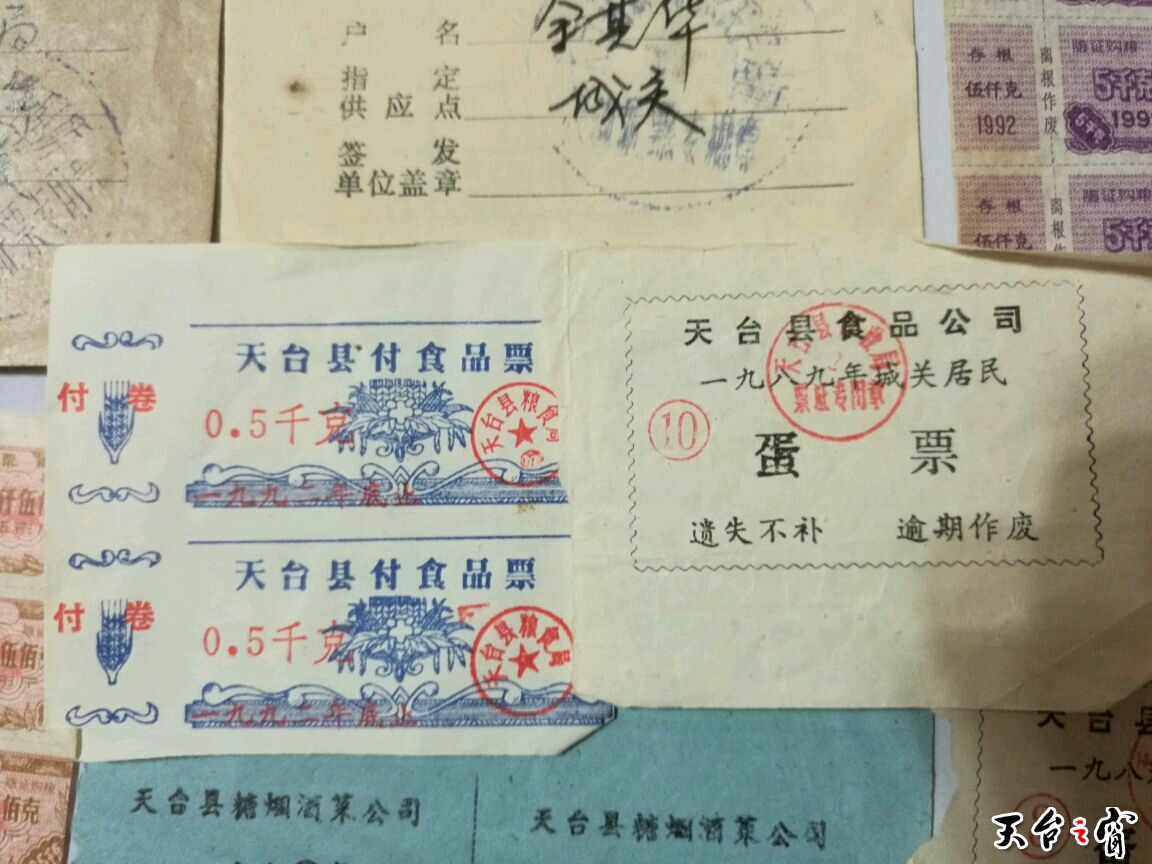 户名 金其华
指定
供应点 城关
签发
单位盖章
存根
伍仟克
1992
离根作废
随证购粮
5千克
1992
存根
伍仟克
离根作废
随证购粮
天台县付食品票
付卷
0.5千克
天台县粮食局
一九九二年底止
天台县付食品票
付卷
0.5千克
天台县粮食局
一九九二年底止
天台县食品公司
一九八九年城关居民
10
蛋票
票证专用章
遗失不补 逾期作废
天台县糖烟酒菜公司
天台县糖烟酒菜公司
天台县
一九八
伍佰克
佰克
天台之窗